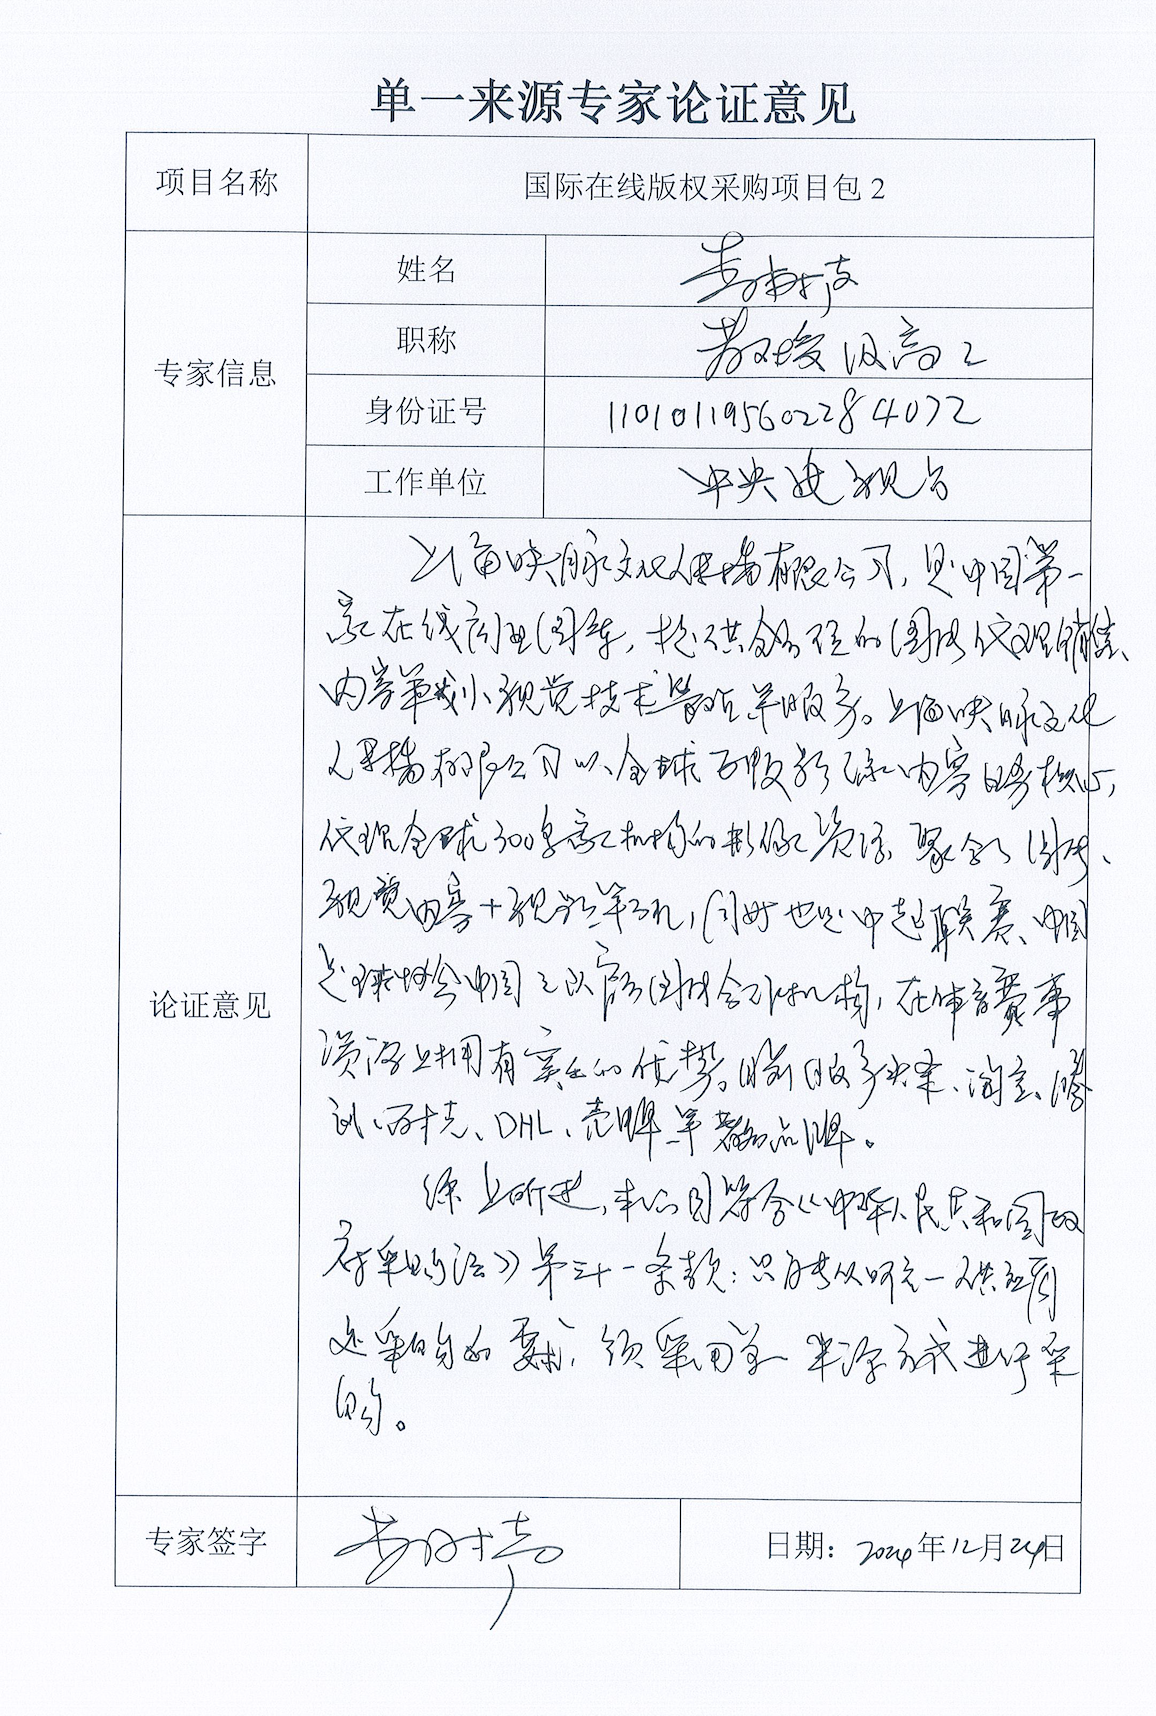 单一来源专家论证意见
项目名称
国际在线版权采购项目包2
专家信息
姓名
职称
教授级高工
身份证号
110101195602284072
工作单位
中央电视台
论证意见
上海映脉文化传播有限公司，是中国第一
家在线商业图库，提供全方位的图片代理销售、
内容策划、视觉技术等服务。上海映脉文化
传播有限公司以全球正版影像内容服务为核心，
代理全球300多家机构的影像资源，聚合了图片、
视觉内容+视频等，同时也是中超联赛、中国
足球协会中国之队官方图片合作机构，在体育赛事
资源上拥有突出的优势。目前服务头条、淘宝、腾
讯、万达、DHL、壳牌等著名品牌。
综上所述，本项目符合《中华人民共和国政
府采购法》第三十一条款：只能从唯一供应商
处采购的要求，须采用单一来源方式进行采
购。
专家签字
日期：2024年12月24日